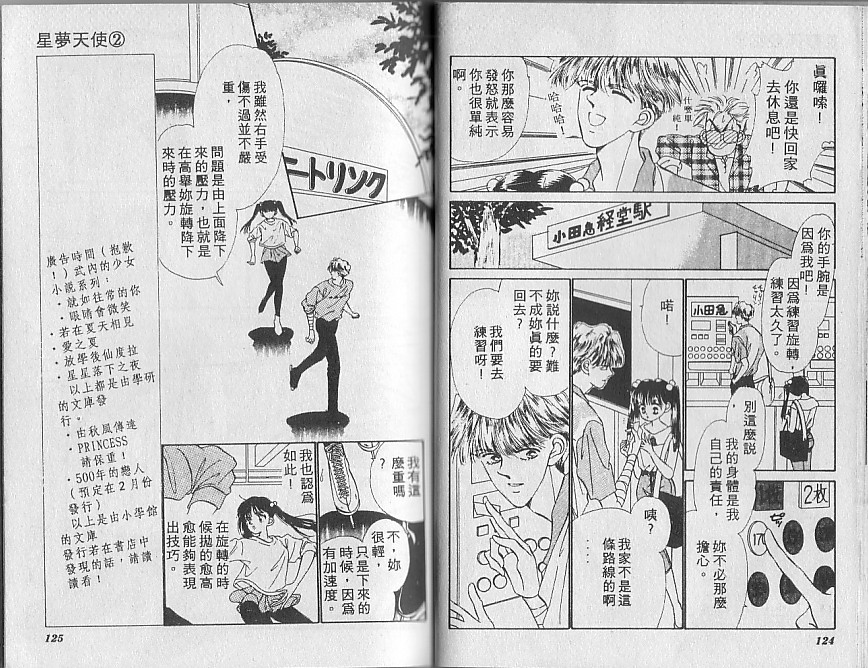 真囉嗦！
你還是快回家
去休息吧！
什麼單
純！
哈
哈哈！
你那麼容易
發怒就表示
你也很單純
啊。
小田急経堂駅
你的手腕是
因為我吧！
因為練習旋轉，
練習太久了。
小田急
別這麼說
我的身體是我
自己的責任，
妳不必那麼
擔心。
2枚
170
喏！
咦？
我家不是這
條路線的啊
····
妳說什麼？難
不成妳真的要
回去？
我們要去
練習呀！
124
星夢天使②
我雖然右手受
傷不過並不嚴
重，
問題是由上面降下
來的壓力，也就是
在高舉妳旋轉降下
來時的壓力。
ニートリンク
我有這
麼重嗎
？
不，妳
很輕，
只是下來的
時候，因為
有加速度。
我也認為
如此！
在旋轉的時
候拋的愈高
愈能夠表現
出技巧。
廣告時間（抱歉
！）式內的少女
小說系列：
・就如往常的你
・眼睛會微笑
・若在夏天相見
・愛之夏
・放學後仙度拉
・星星落下之夜
以上都是由學研
的文庫發
行。
・由秋風傳達
・PRINCESS
請保重！
・500年的戀人
（預定在2月份
發行）
以上是由小學館
的文庫
發行若在書店中
發現的話，請讀
讀看！
125